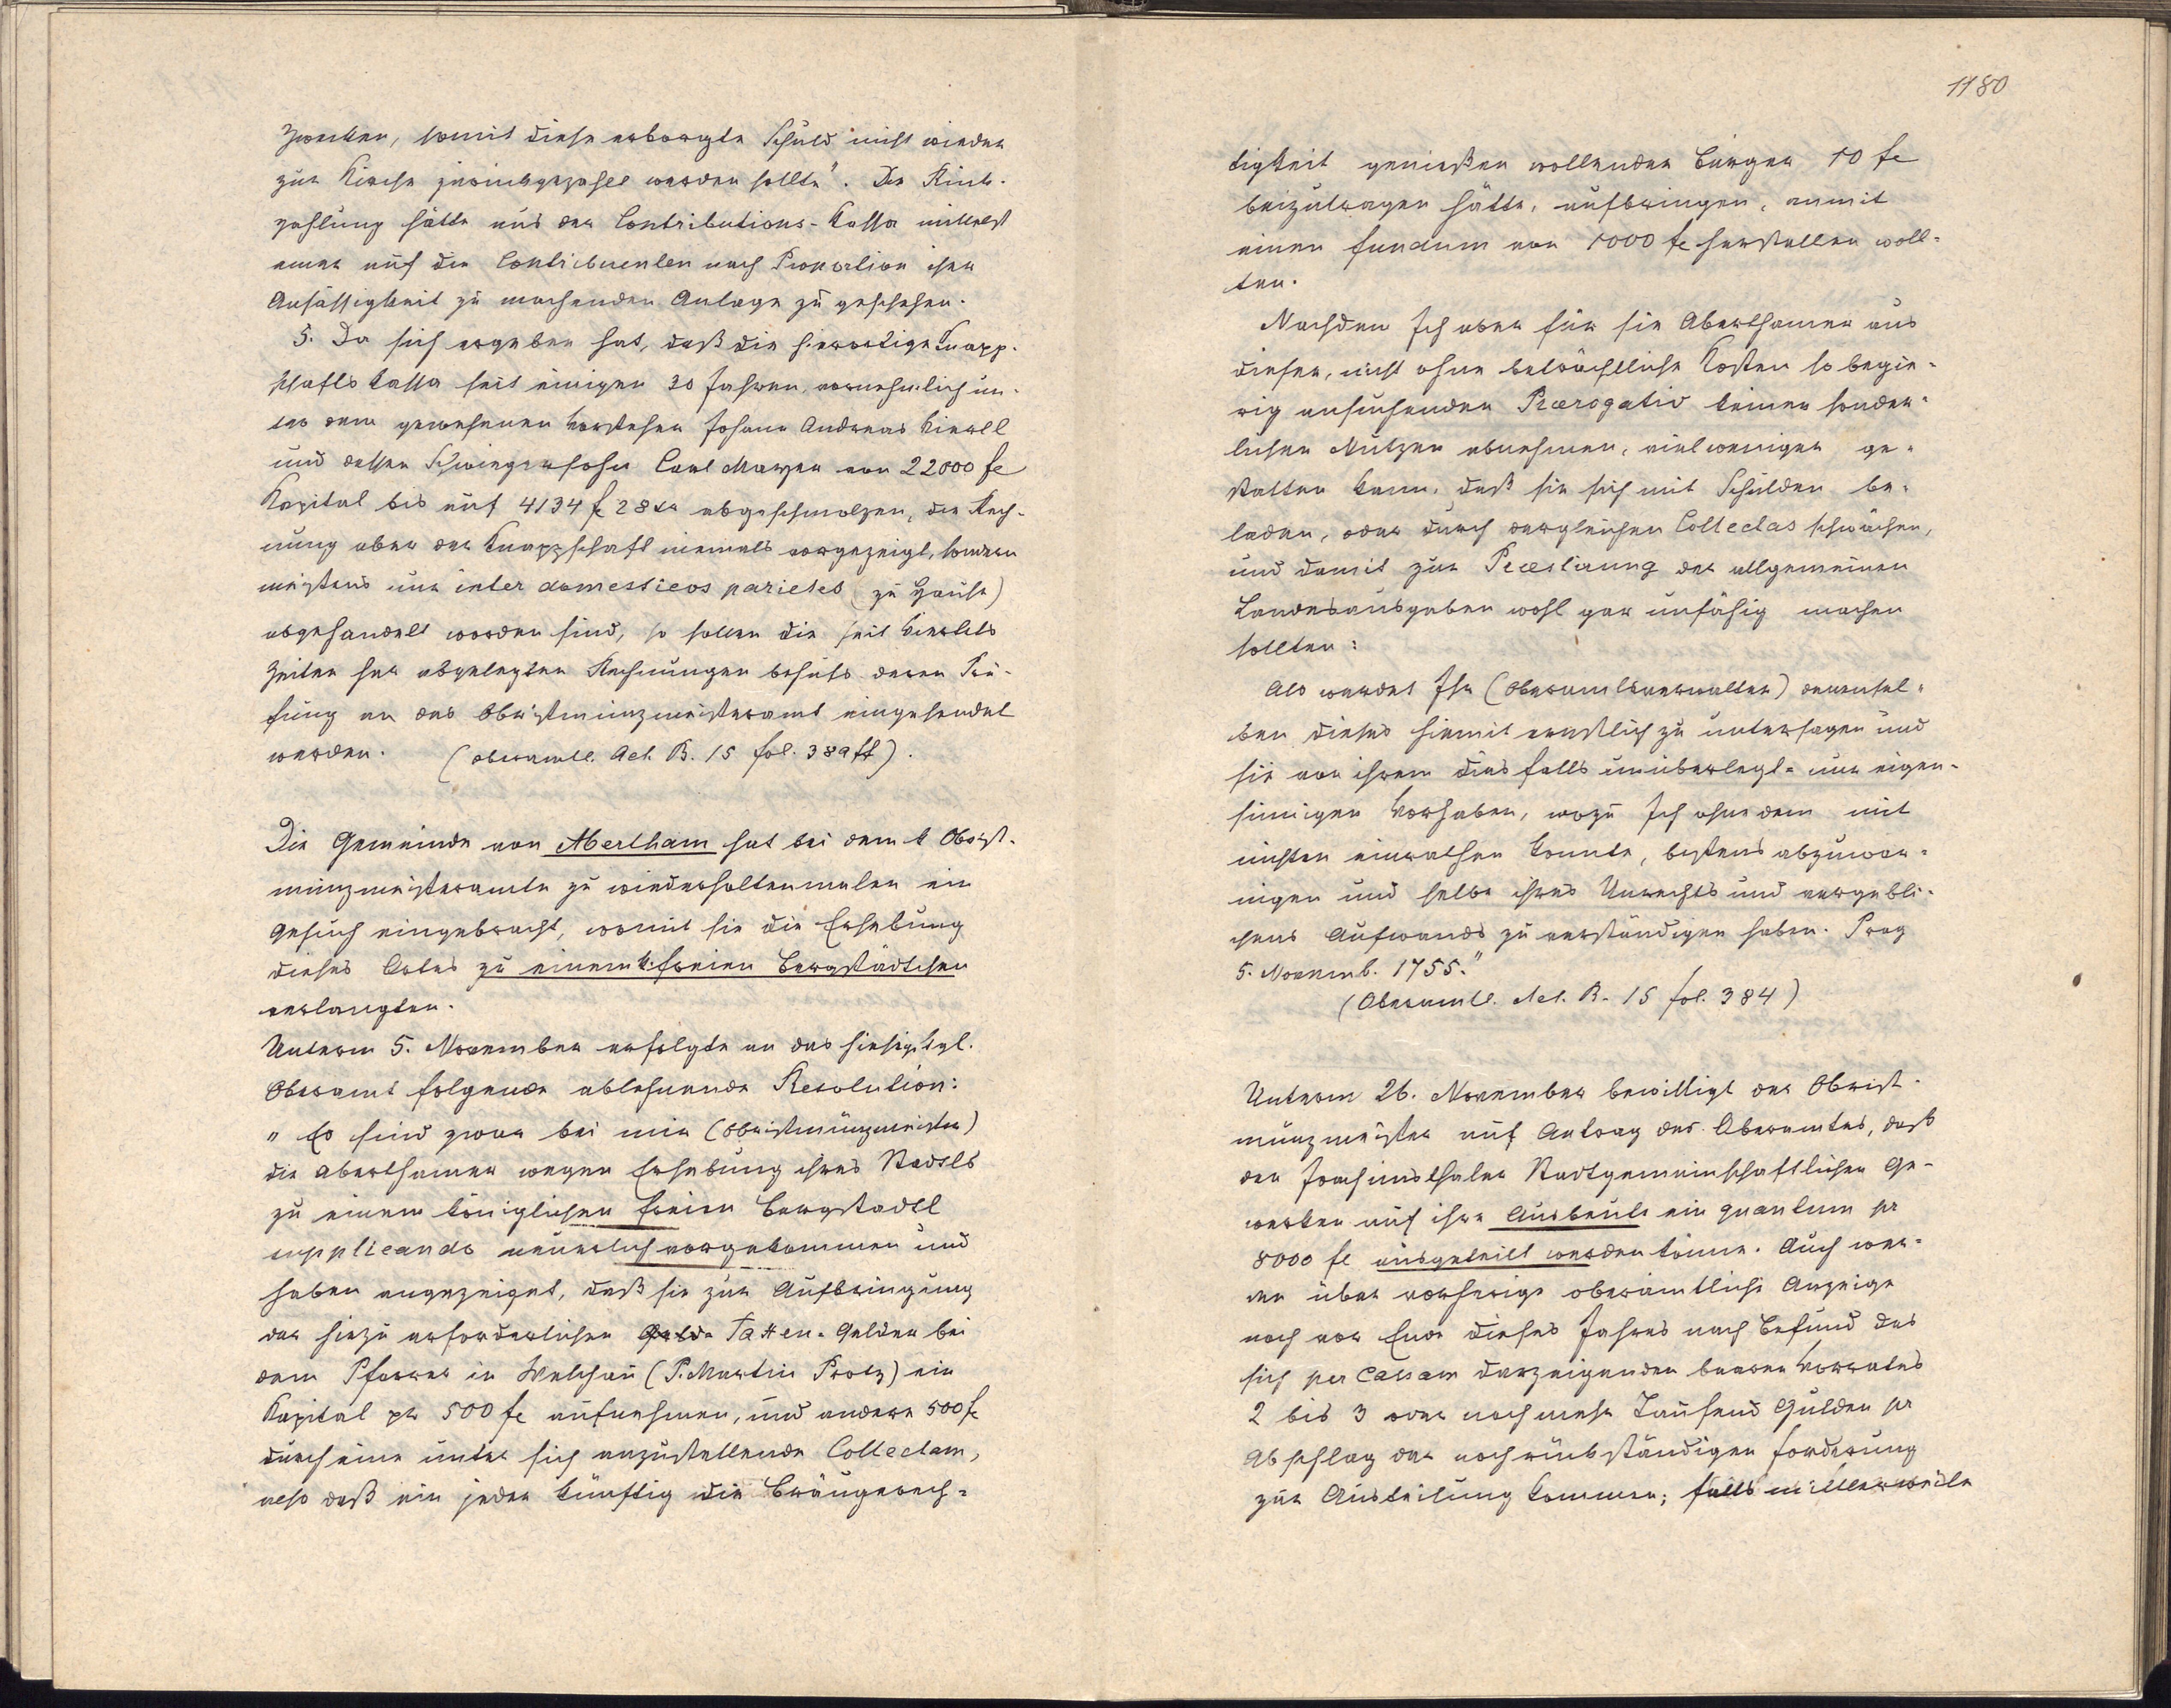 zwecken, somit diese erborgte Schuld nicht wieder
zur Kirche zurückgezahlt werden sollte". Die Rück-
zahlung hätte aus der Contributions-Cassa mittelst
einer auf die Contribuenten nach Proportion ihrer
Ansässigkeit zu machenden Anlage zu geschehen.
5. Da sich ergeben hat, daß die hierortige Knapp-
schaftskassa seit einigen 30 Jahren, vornehmlich un-
ter dem gewesenen Vorsteher Johann Andreas
und dessen Schwiegersohn Carl Mayer von 22000 fl
Kapital bis auf 4134 fl 28 xr abgeschmolzen, die Rech-
nung aber der Knappschaft niemals vorgezeigt, sondern
meistens nur inter domesticos parietes (zu Hause)
abgehandelt worden sind, so sollen die seit
Zeiten her abgelegten Rechnungen behufs deren Prü-
fung an das Obristmünzmeisteramt eingesendet
werden. (oberamtl. Act. B. 15 fol. 389 ff).
Die Gemeinde von Abertham hat bei dem k Oberst-
münzmeisteramte zu wiederholtenmalen ein
Gesuch eingebracht, womit sie die Erhebung
dieses Ortes zu einem k. freien Bergstädtchen
verlangten.
Unterm 5. November erfolgte an das hiesige kgl.
Oberamt folgende ablehnende Resolution:
"Es sind zwar bei mir (Obristmünzmeister)
die Aberthamer wegen Erhebung ihres Stadtls
zu einem königlichen freien Bergstadtl
supplicando neuerlich vorgekommen und
haben angezeiget, daß sie zur Aufbringung
der hiezu erforderlichen Taxen-Gelder bei
dem Pfarrer in Welchau (P. Martin Protz) ein
Kapital pr 500 fl aufnehmen, und andere 500 fl
durch eine unter sich anzustellende Collectam,
also daß ein jeder künftig die Bräugerech-
1180
tigkeit genießen wollender Bürger 10 fl
beizutragen hätte, aufbringen, anmit
einen fundum von 1000 fl herstellen woll-
ten.
Nachdem Ich aber für sie Aberthamer aus
dieser, nicht ohne beträchtliche Kosten so begie-
rig ansuchenden Praerogativ keinen sonder-
lichen Nutzen abnehmen, viel weniger ge-
statten kann, daß sie sich mit Schulden be-
laden, oder durch dergleichen Collectas schwächen,
und damit zur Praestirung der allgemeinen
Landesausgaben wohl gar unfähig machen
sollten:
Als werdet Ihr (Oberamtsverwalter) denensel-
ben dieses hiemit ernstlich zu untersagen und
sie von ihrem diesfalls unüberlegt- nur eigen-
sinnigen Vorhaben, wozu Ich ohne dem mit
nichten einrathen konnte, bestens abzumah-
nigen und selbe ihres Unrechts und vergebli-
chens Aufwands zu verständigen haben. Prag
5. Novemb. 1755."
(Oberamtl. Act. B. 15 fol. 384)
Unterm 26. November bewilligt der Obrist-
münzmeister auf Antrag des Oberamtes, daß
den Joachimsthaler Stadtgemeinschaftlichen Ge-
werken auf ihre Ausbeute ein quantum pr
8000 fl ausgeteilt werden könne. Auch wer-
den über vorherige oberämtliche Anzeige
noch vor Ende dieses Jahres nach Befund des
sich per Cassam darzeigenden baaren Vorrates
2 bis 3 oder noch mehr Tausend Gulden pr
Abschlag der noch rückständigen Forderung
zur Austeilung kommen; falls mittlerweile